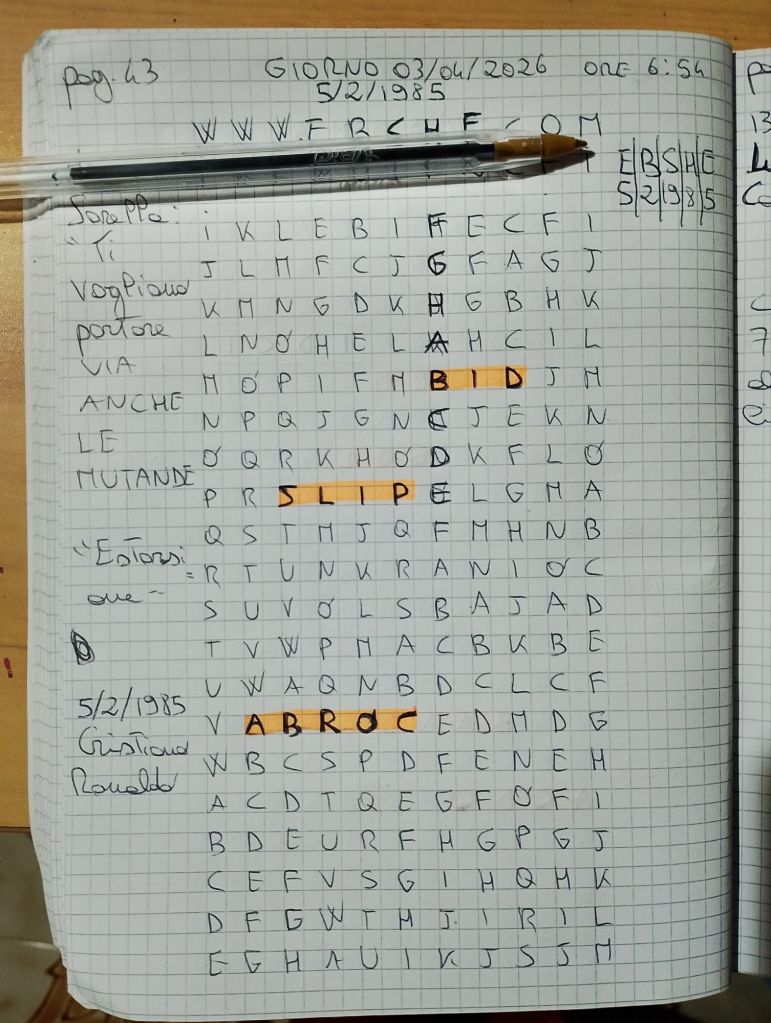 pag. 43 GIORNO 03/04/2026 ORE 6:54
5/2/1985
W W W . F R C H F C O M
E B S H E
5 2 19 8 5
Sorella:
I K L E B I F E C F I
"Ti
J L M F C J G F A G J
vogliono
K M N G D K H G B H K
portare
L N O H E L A H C I L
VIA
M O P I F M B I D J M
ANCHE
N P Q J G N C J E K N
LE
O Q R K H O D K F L O
MUTANDE
P R S L I P E L G M A
Q S T M J Q F M H N B
"Estorsi
= R T U N K R A N I O C
one -
S U V O L S B A J A D
T V W P M A C B K B E
U W A Q N B D C L C F
5/2/1985
V A B R O C E D M D G
Cristiano
W B C S P D F E N E H
Ronaldo
A C D T Q E G F O F I
B D E U R F H G P G J
C E F V S G I H Q H K
D F G W T H J I R I L
E G H A U I K J S J M
13
7